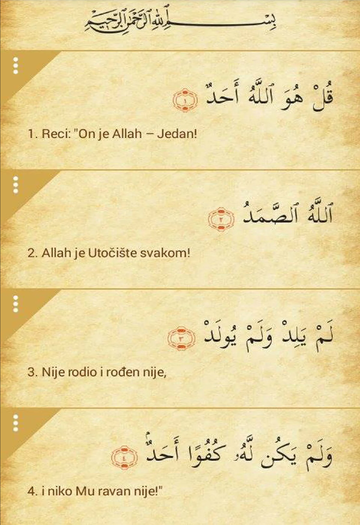 بِسْمِ ٱللَّهِ ٱلرَّحْمَٰنِ ٱلرَّحِيمِ
قُلْ هُوَ ٱللَّهُ أَحَدٌ ١
1. Reci: "On je Allah – Jedan!
ٱللَّهُ ٱلصَّمَدُ ٢
2. Allah je Utočište svakom!
لَمْ يَلِدْ وَلَمْ يُولَدْ ٣
3. Nije rodio i rođen nije,
وَلَمْ يَكُن لَّهُۥ كُفُوًا أَحَدٌۢ ٤
4. i niko Mu ravan nije!"